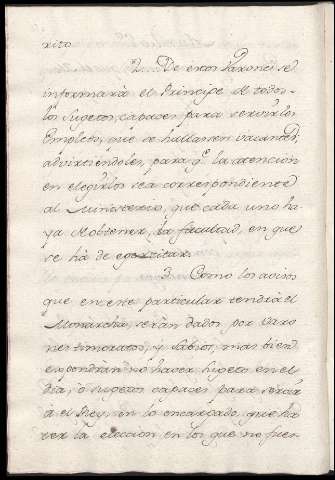 rito.
2.... De estos Varones se
informarà el Principe de todos
los Sugetos, capaces para servir los
Empleos, que se hallasen vacantes,
advirtiendoles, para q.e la atencion
en elegirlos sea correspondiente
al Ministerio, que cada uno ha
ya de obtener, la facultad, en que
se hà de exercitar.
3. Como los avisos
que en este particular tendrà el
Monarcha, seràn dados, por Varo
nes timoratos, y Sabios, mas bien
expondràn no haver Sugetos en el
dia, ò Sugetos capaces para servir
à el Rey, en lo encargado, que ha
cer la eleccion en los que no fuer